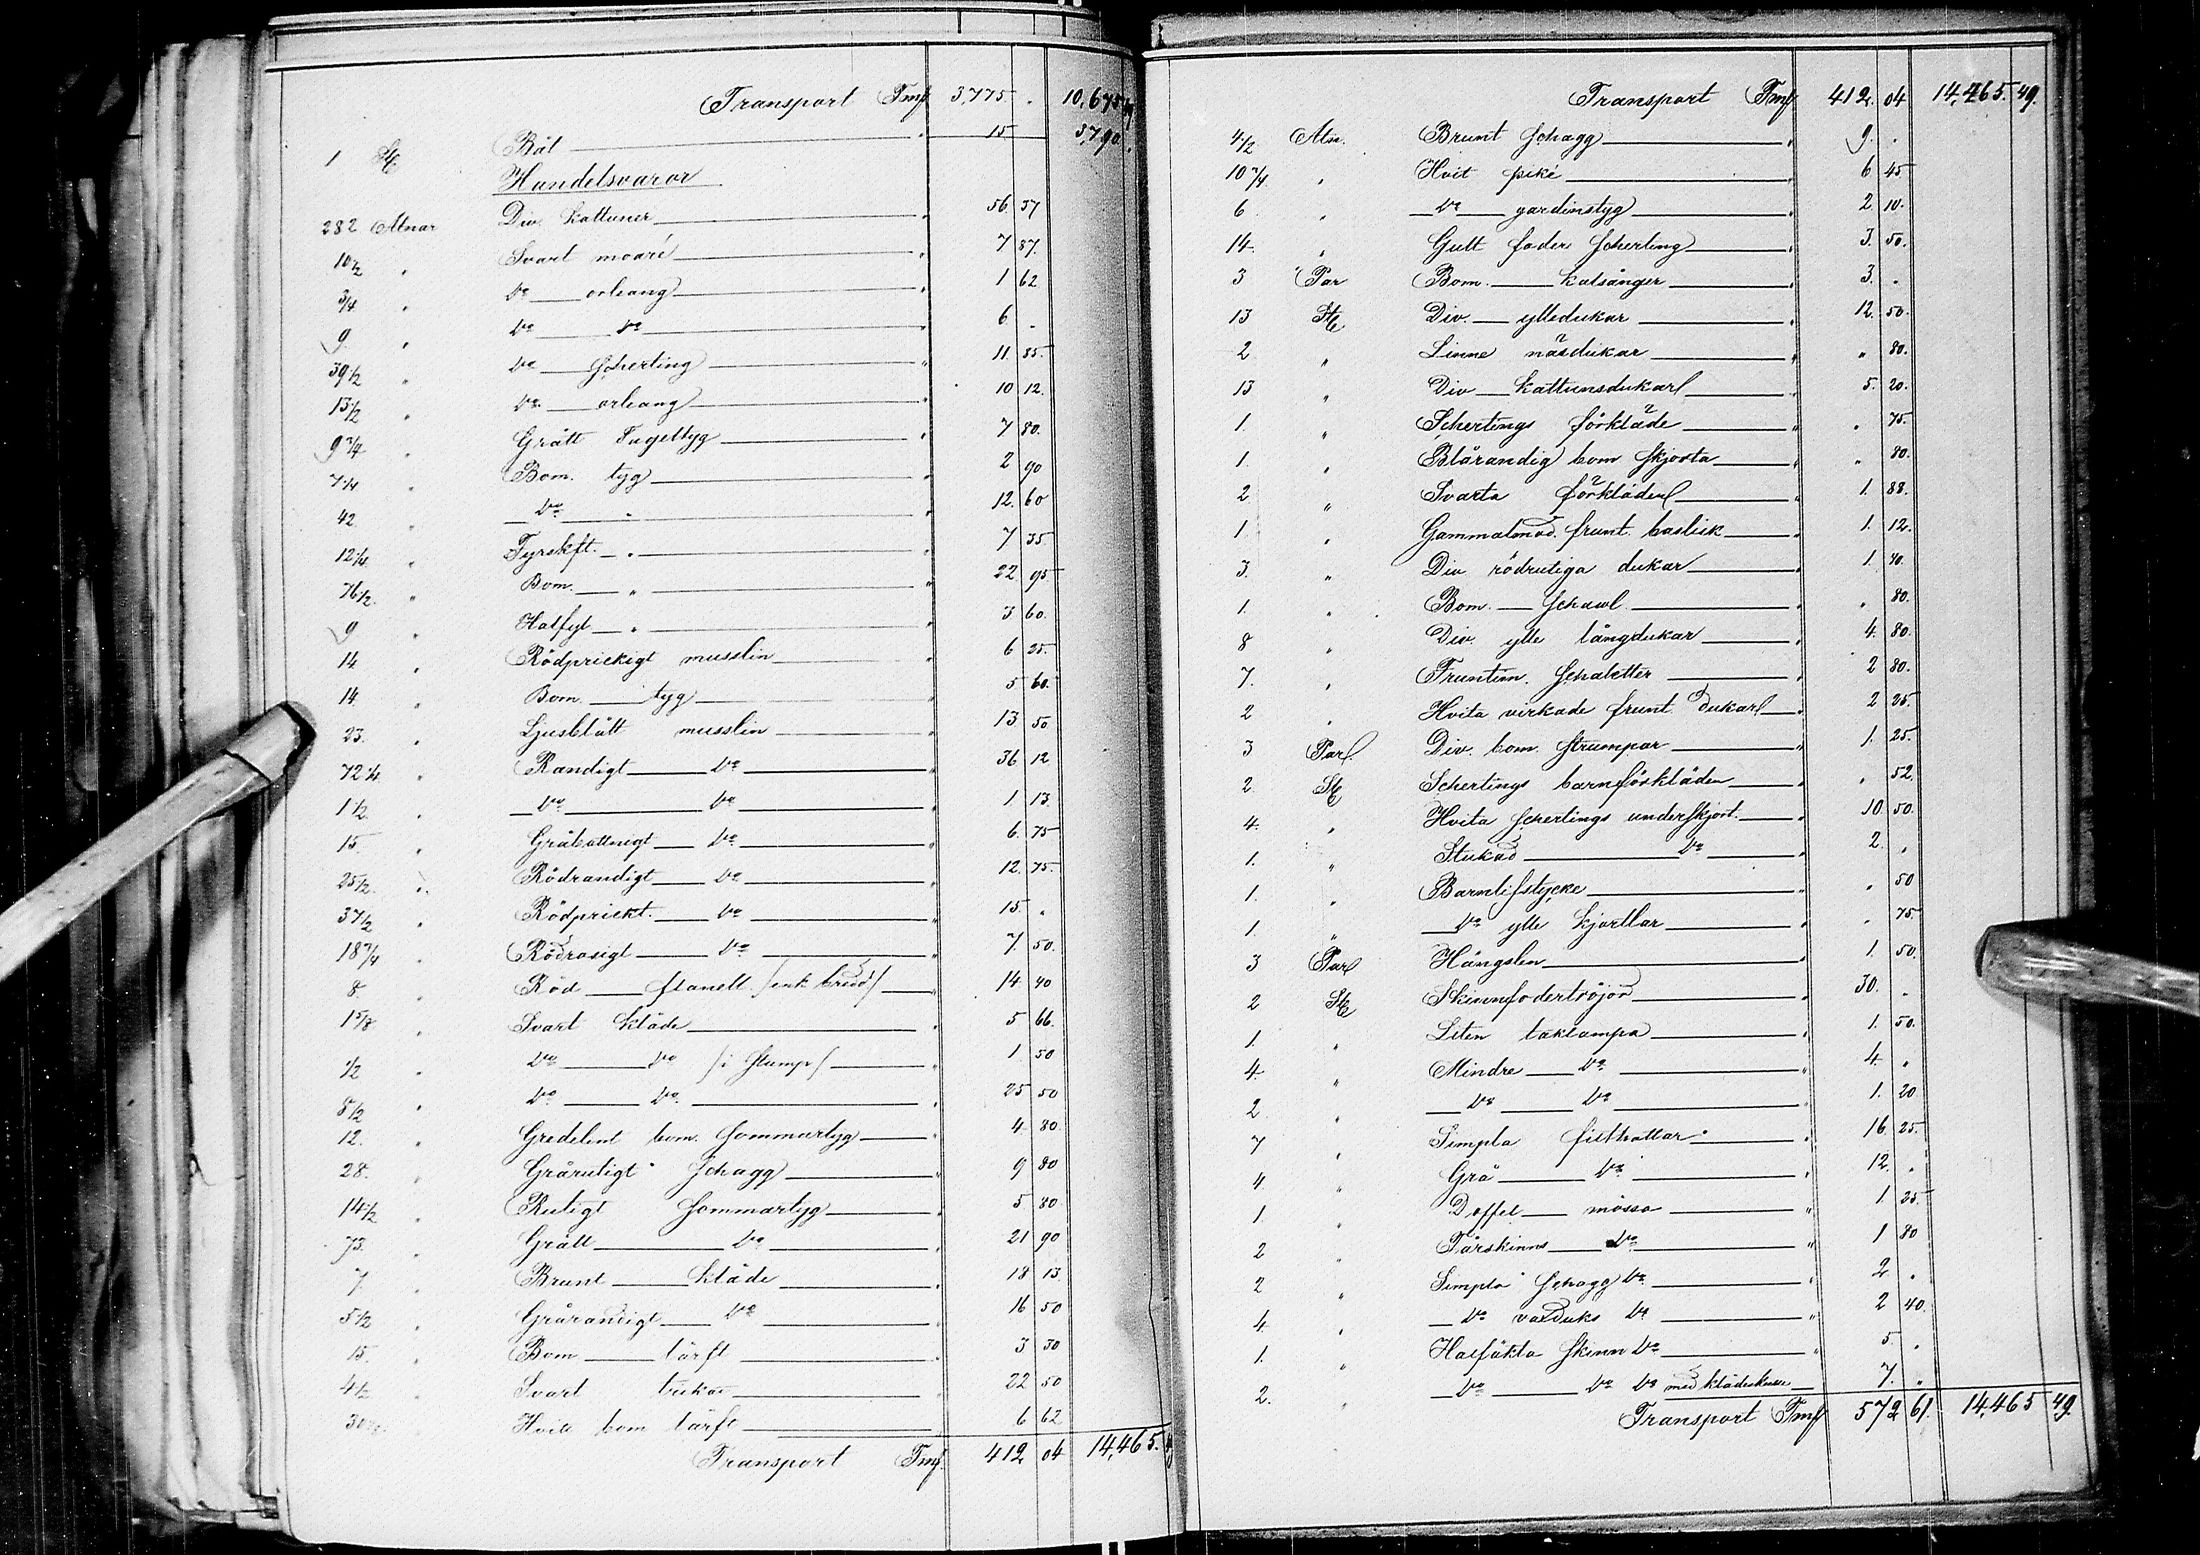 Transport Fmk 3,775 . 10,675 49
1 St. Båt " 15 3,790 .
Handelsvaror
282 Alnar Div. kattuner " 56 37
10 1/2 " Svart moaré " 7 87.
3/4 " Do orleang " 1 62
9. " Do Do " 6 .
39 1/2 " Do Scherting " 11. 85.
13 1/2 " Do orleang " 10 12.
9 3/4 " Grått Fugeltyg " 7 80.
7 1/4 " Bom. tyg " 2 90
42 " Do " " 12. 60
12 1/4 " Tyrskft. " " 7 35
76 1/2 " Bom. " " 22 95
9 " Halfyl " " 3 60.
14 " Rödprickigt musslin " 6 25.
14. " Bom tyg " 5 60.
23. " Ljusblått musslin " 13 50
72 1/4 " Randigt Do " 36 12
1 1/2 " Do Do " 1 13.
15 " Gråbottnigt Do " 6. 75
25 1/2 " Rödrandigt Do " 12. 75.
37 1/2 " Rödprickt. Do " 15. "
18 3/4 " Rödrosigt Do " 7. 50.
8 " Röd flanell /enk bredd/ " 14 40
1 5/8 " Svart kläde " 5 66.
1/2 " Do Do /i stump/ " 1 50
8 1/2 " Do Do " 25 50
12. " Gredelint bom. sommartyg " 4 80.
28. " Grårutigt Schagg " 9 80
14 1/2 " Rutigt sommartyg " 5 80
73. " Grått Do " 21 90
7. " Brunt kläde " 18 13.
5 1/2 " Grårandigt Do " 16 50
15. " Bom lärft " 3 30
4 1/2 " Svart trikot " 22 50
30 " Hvitt bom lärft " 6 62
Transport Fmk. 412 04 14,465. 49
Transport Fmk 412. 04 14,465. 49.
4 1/2 Aln. Brunt Schagg " 9. .
10 3/4 " Hvit piké " 6 45
6 " Do gardinstyg " 2. 10.
14 " Gult foder scherting " 3. 50.
3 Par Bom. kalsånger " 3. .
13 St. Div. ylledukar " 12. 50.
2 " Linne näsdukar " " 80.
13 " Div kattunsdukar " 5. 20.
1. " Schertings förkläde " " 75.
1. " Blårandig bom skjorta " " 80.
2 " Svarta förkläden " 1. 88.
1. " Gammalmod. frunt. basluk " 1. 12.
3. " Div rödrutiga dukar " 1. 40.
1. " Bom. Schawl " " 80.
8 " Div. ylle långdukar " 4. 80.
7. " Fruntim. Schaletter " 2 80.
2 " Hvita virkade frunt. dukar " 2 25.
3 Par. Div. bom. strumpor " 1. 25.
2 St. Schertings barnförkläden " " 52.
4. " Hvita schertings underskjort. " 10. 50.
1. " Stukad Do " 2. "
1. " Barnlifstycke " " 50
1. " Do ylle kjortlar " " 75.
3 Par Hängslen " 1. 50.
2 St. Skinnfodertröjor " 30. "
1. " Liten taklampa " 1. 50.
4. " Mindre Do " 4. "
2. " Do Do " 1. 20
7 " Simpla filthattar " 16. 25.
4 " Grå Do " 12. "
1. " Doffel mössa " 1 25
2 " Fårskinns Do " 1 80
2 " Simpla Schagg Do " 2 "
4. " Do valduks Do " 2 40.
1. " Halfäkta skinn Do " 5. "
2. " Do Do Do med klädeskulle 7. "
Transport Fmk 572 61. 14,465 49.